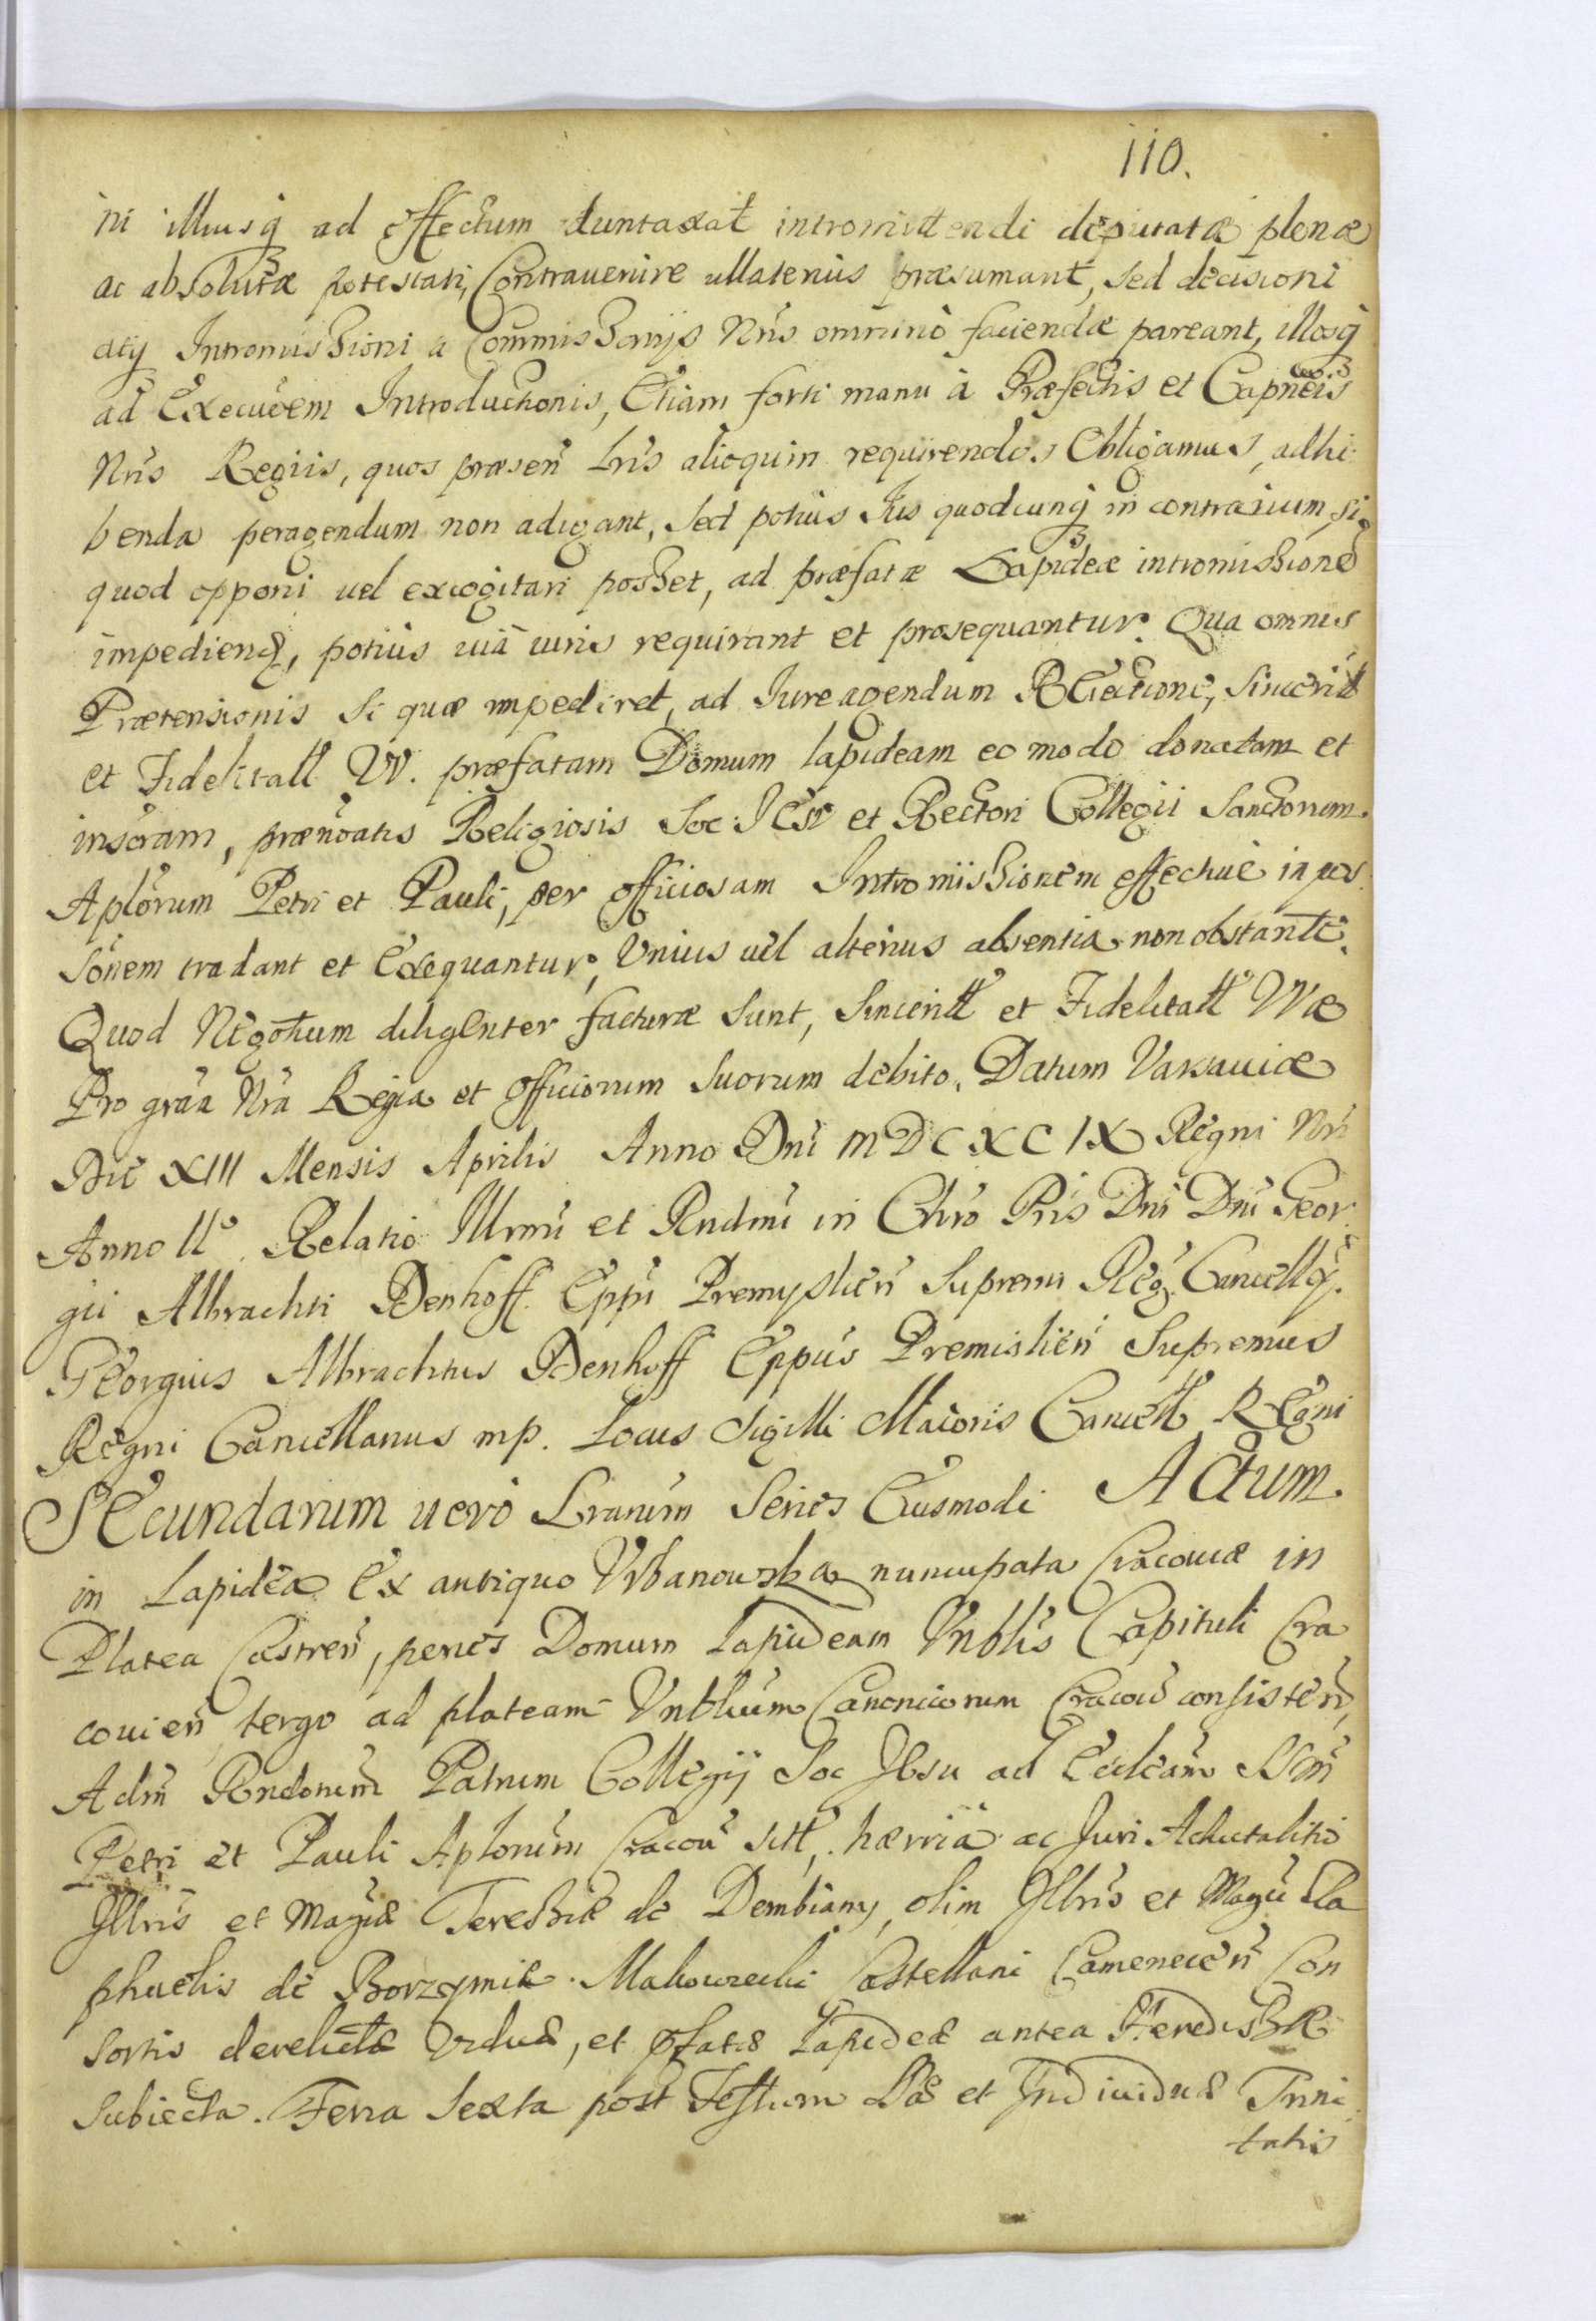 110.
ni illiusq ad effectum duntaxat intromittendi deputatæ plenæ
ac absolutæ potestati, Contravenire ullatenus præsumant, sed decisioni
atq Intromissioni a Commissarijs Nris omnino faciendæ pareant, illosq
ad Execuõem Introductionis, Etiam forti manu à Præfectis et Capneis
Nris Regiis, quos præsen Lris alioquin requirendos Obligamus, adhi
benda peragendum non adigant, sed potius Ius quodcunq in contrarium, si
quod opponi uel excogitari posset, ad præfatæ Lapideæ intromissione
impediend, potius uiâ iuris requirant et prosequantur. Qua omnis
Prætensionis si quæ impediret, ad Iure agendum Sincerit
et Fidelitatt VV. præfatam Domum lapideam eo modo donatam et
inscram, prænoatis Religiosis Soc: JEsu et Rectori Collegii Sanctorum
Aplorum Petri et Pauli, per officiosam Intromissionem effectiuè in pos
sonem tradant et Exequantur, Vnius uel alterius absentia non obstante.
Quod Negotium diligenter facturæ sunt, Sinceritt et Fidelitatt VVæ
Pro graa Nra Regia et officiorum suorum debito. Datum Varsauiæ
Die XIII Mensis Aprilis Anno Dni MDCXCIX Regni Nri
Anno IIo. Relatio Illmi et Rndmi in Chro Pris Dni Dni Geor
gii Albrachti Denhoff Eppi Premyslien Supremi Reg Cancellrÿ.
Georgius Albrachtus Denhoff Eppus Premislien Supremus
Regni Cancellarius mp. Locus Sigilli Maioris Cancell REgni
SEcundarum uero Lrarum Series Eiusmodi ACtum
in Lapidea Ex antiquo Vrbanowska nuncupata Cracouiæ in
Platea Castren, penes Domum Lapideam Vnblis Capituli Cra
couien tergo ad plateam Vnblium Canonicorum Cracou consisten,
Adm Rndorum Patrum Collegÿ Soc Jesu ad Eccleam SSm
Petri et Pauli Aplorum Cracou sitt, hærria ac Juri Aduitalitio
Jllris et Magæ Teressiæ de Dembiany, olim Jllris et Magci Ra
phaelis de Borzymie Makowiecki Castellani Camenecen Con
sortis derelictæ Viduæ, et pfatæ Lapideæ antea Heredissæ
subiecta. Feria Sexta post Festum Ss et Jndiuiduæ Trini
tatis